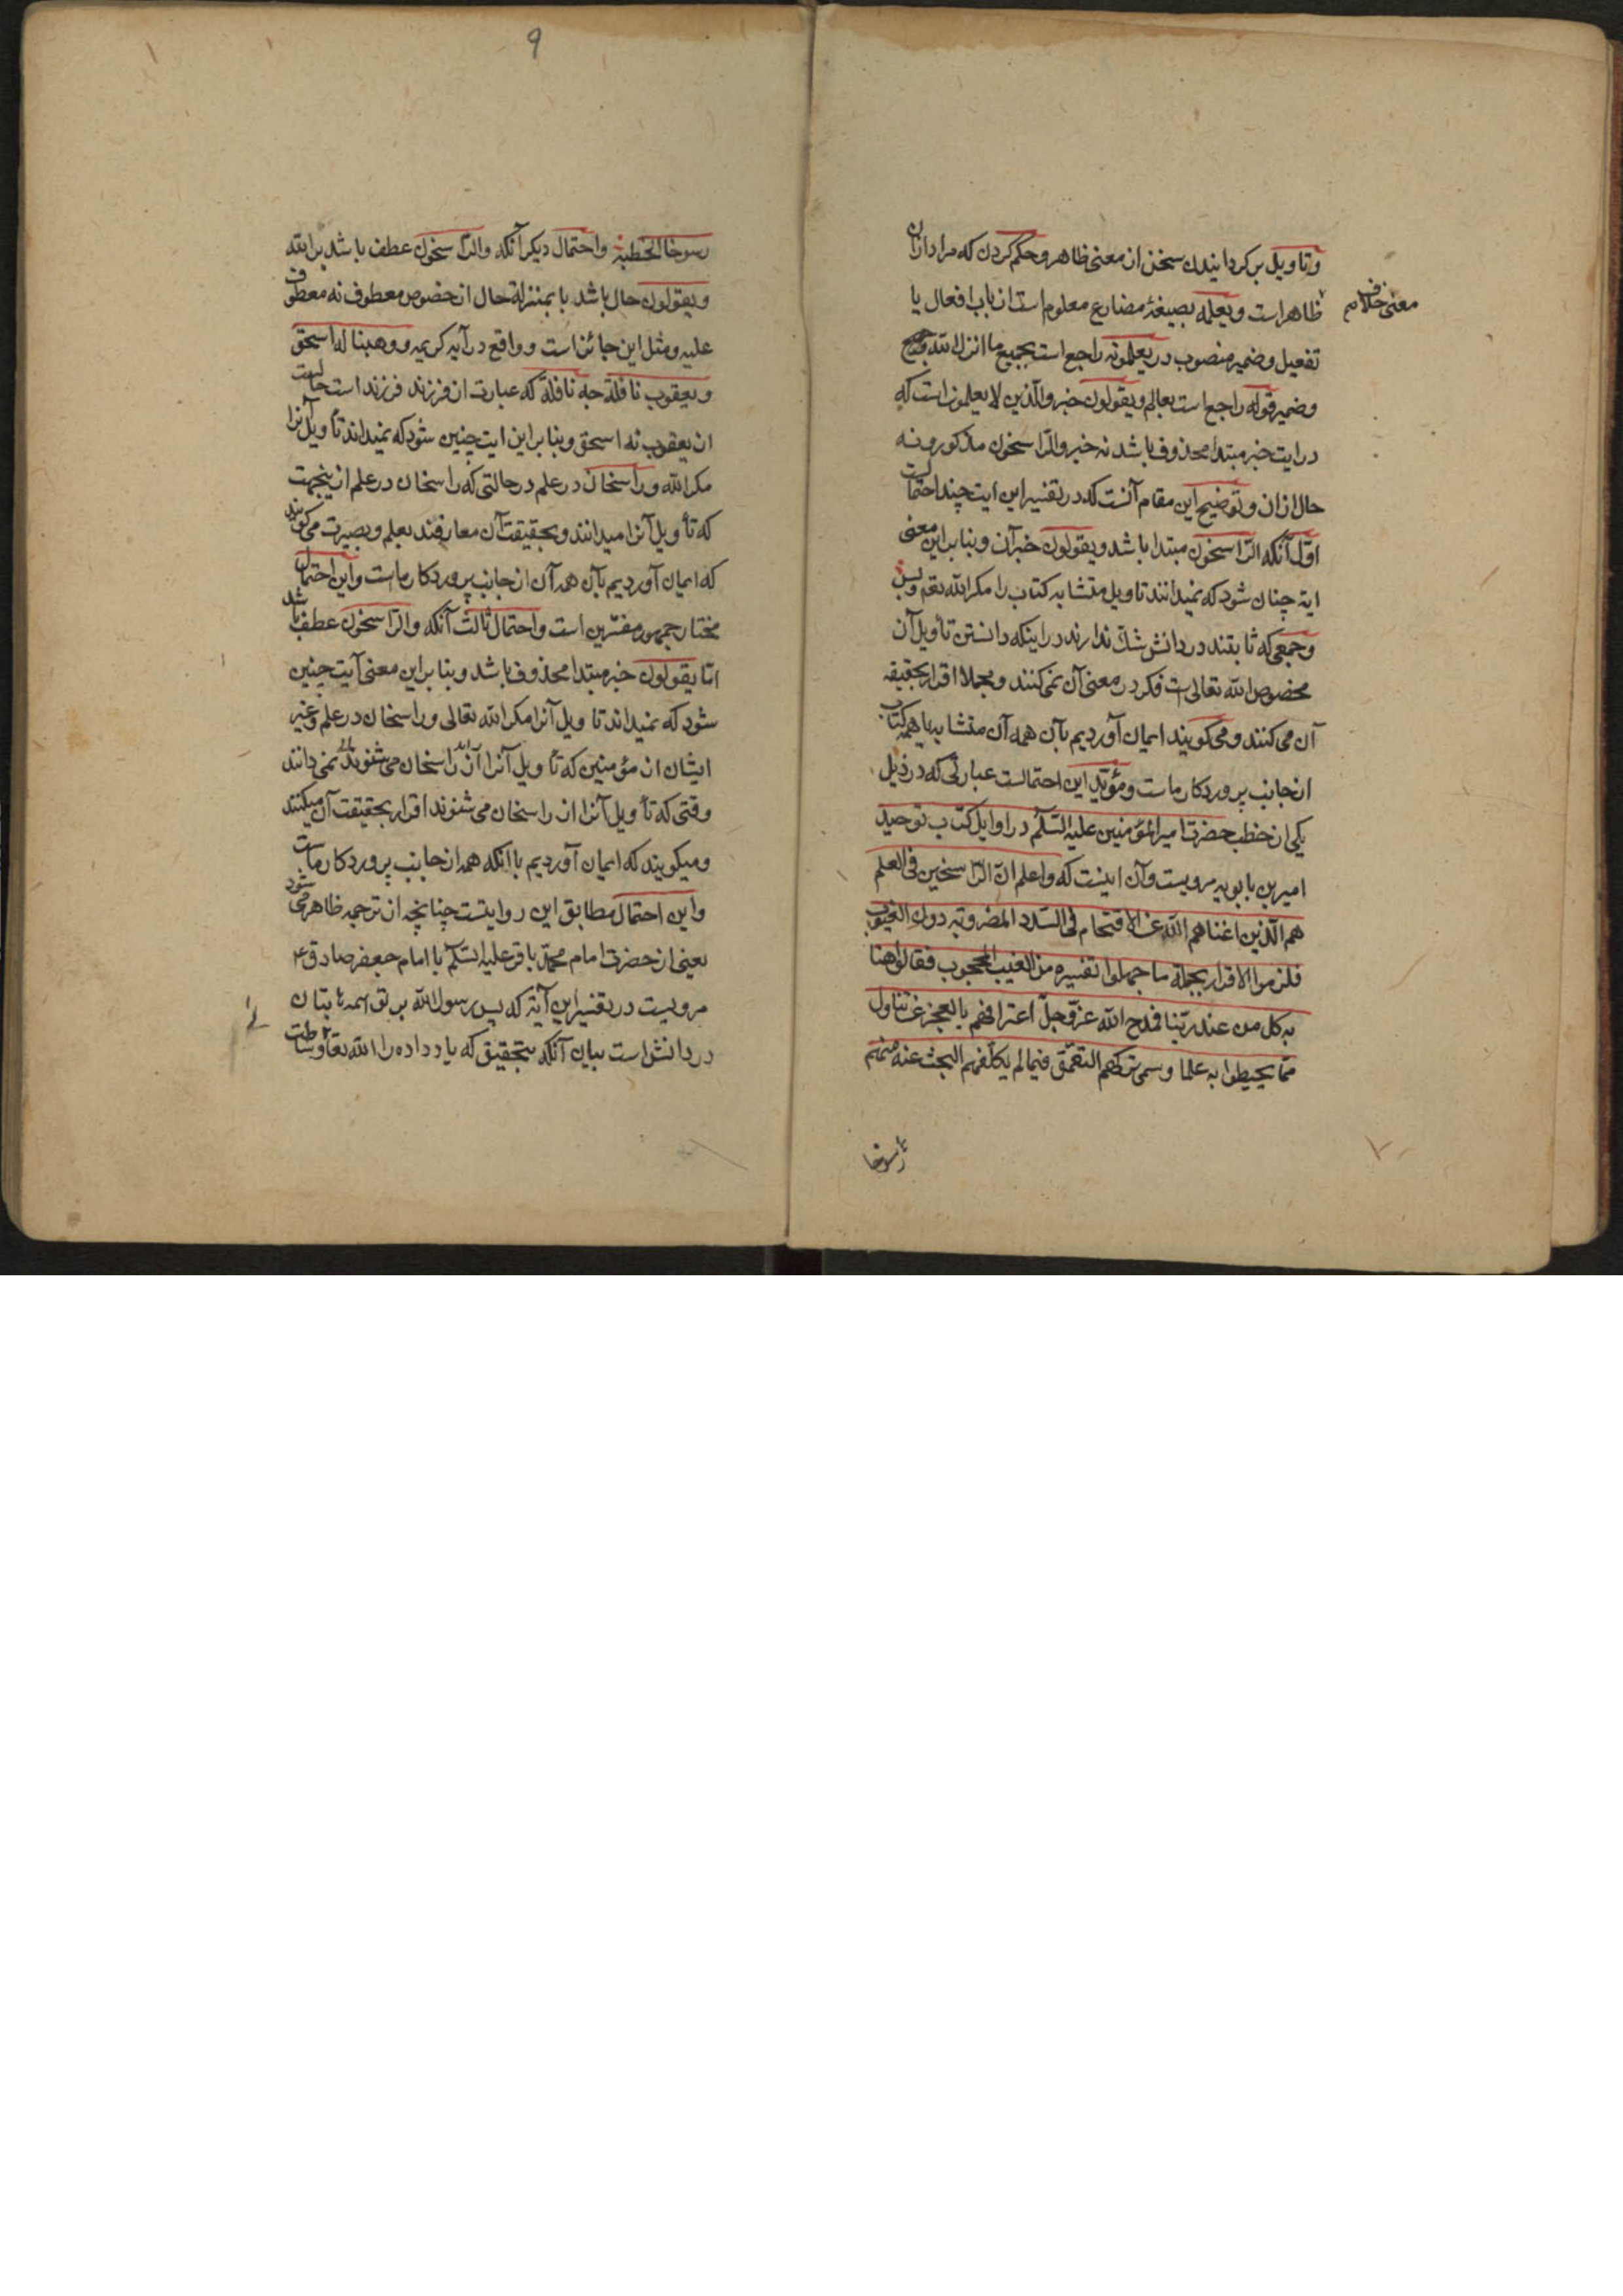 وتاویل برکردانیدن سخن از معنی ظاهر و حکم کردن که مراد ازان
معنی خلاف
ظاهر است و یعلمه بصیغۀ مضارع معلوم است از باب افعال یا
تفعیل و ضمیر منصوب در یعلمونه راجع است بجمیع ما انزل الله
و ضمیر قوله راجع است بعالم و یقولون خبر والذین لا یعلمون است که
در ایت خبر مبتدا محذوف باشد نه خبر والرّاسخون مذکور و نه
حال ازان و توضیح این مقام آنست که در تفسیر این ایت چند احتمالست
اوّل آنکه الرّاسخون مبتدا باشد و یقولون خبر آن و بنا براین معنی
ایه چنان شود که نمیدانند تاویل متشابه کتاب را مکر الله تعم و بس
و جمعی که ثابتند در دانش شک ندارند در اینکه دانستن تأویل آن
مخصوص الله تعالی است فکر در معنی آن نمی کنند و مجملا اقرار بحقیقه
آن می کنند و می کویند ایمان آوردیم بآن همه آن متشابه یا همه کتاب
از جانب پروردکار ماست و مؤیّد این احتمالست عبارتی که در ذیل
یکی از خطب حضرت امیرالمؤمنین علیه السّلم در اوایل کتاب توحید
امیر بن بابویه مرویست و آن اینست که واعلم انّ الرّاسخین فی العلم
هم الّذین اغناهم الله عن الاقتحام فی السّدد المضروبه دون الغیوب
فلزموا الاقرار بجملة ما جهلوا تفسیره من الغیب المحجوب فقالوا امنا
به کل من عند ربّنا فمدح الله عزّ و جلّ اعترافهم بالعجز عن تناول
ممّا یحیطوا به علما و سمی ترکهم التعمّق فیما لم یکلّفهم البحث عنه منهم
رسوخا
۹
رسوخا الخطبة و احتمال دیکر آنکه والرّاسخون عطف باشد بر الله
و یقولون حال باشد یا بمنزله حال از خصوص معطوف نه معطوف
علیه و مثل این جائز است و واقع در آیه کریمه و وهبنا له اسحق
و یعقوب نافلة چه نافلة که عبارت از فرزند فرزند است حالست
از یعقوب نه اسحق و بنا براین ایت چنین شود که نمیداند تأویل آنرا
مکر الله و راسخان در علم در حالتی که راسخان در علم ازینجهت
که تأویل آنرا میدانند و بحقیقت آن معارفند بعلم و بصیرت می کویند
که ایمان آوردیم بآن همه آن از جانب پروردکار ماست و این احتمال
مختار جمهور مفسّرین است و احتمال ثالث آنکه والرّاسخون عطف باشد
امّا یقولون خبر مبتدا محذوف باشد و بنا براین معنی آیت چنین
شود که نمیداند تاویل آنرا مکر الله تعالی و راسخان در علم و غیر
ایشان از مؤمنین که تأویل آنرا از راسخان می شنوند نمی دانند
وقتی که تأویل آنرا از راسخان می شنوند اقرار بحقیقت آن میکنند
و میکویند که ایمان آوردیم باانکه همه از جانب پروردکار ماست
و این احتمال مطابق این روایتست چنانچه از ترجمه ظاهر می شود
یعنی از حضرت امام محمّد باقر علیه السّلم یا امام جعفر صادق ع
مرویست در تفسیر این آیة که پس رسول الله برتق همه ثابتان
در دانش است بیان آنکه بتحقیق که یاد داده را الله تعا